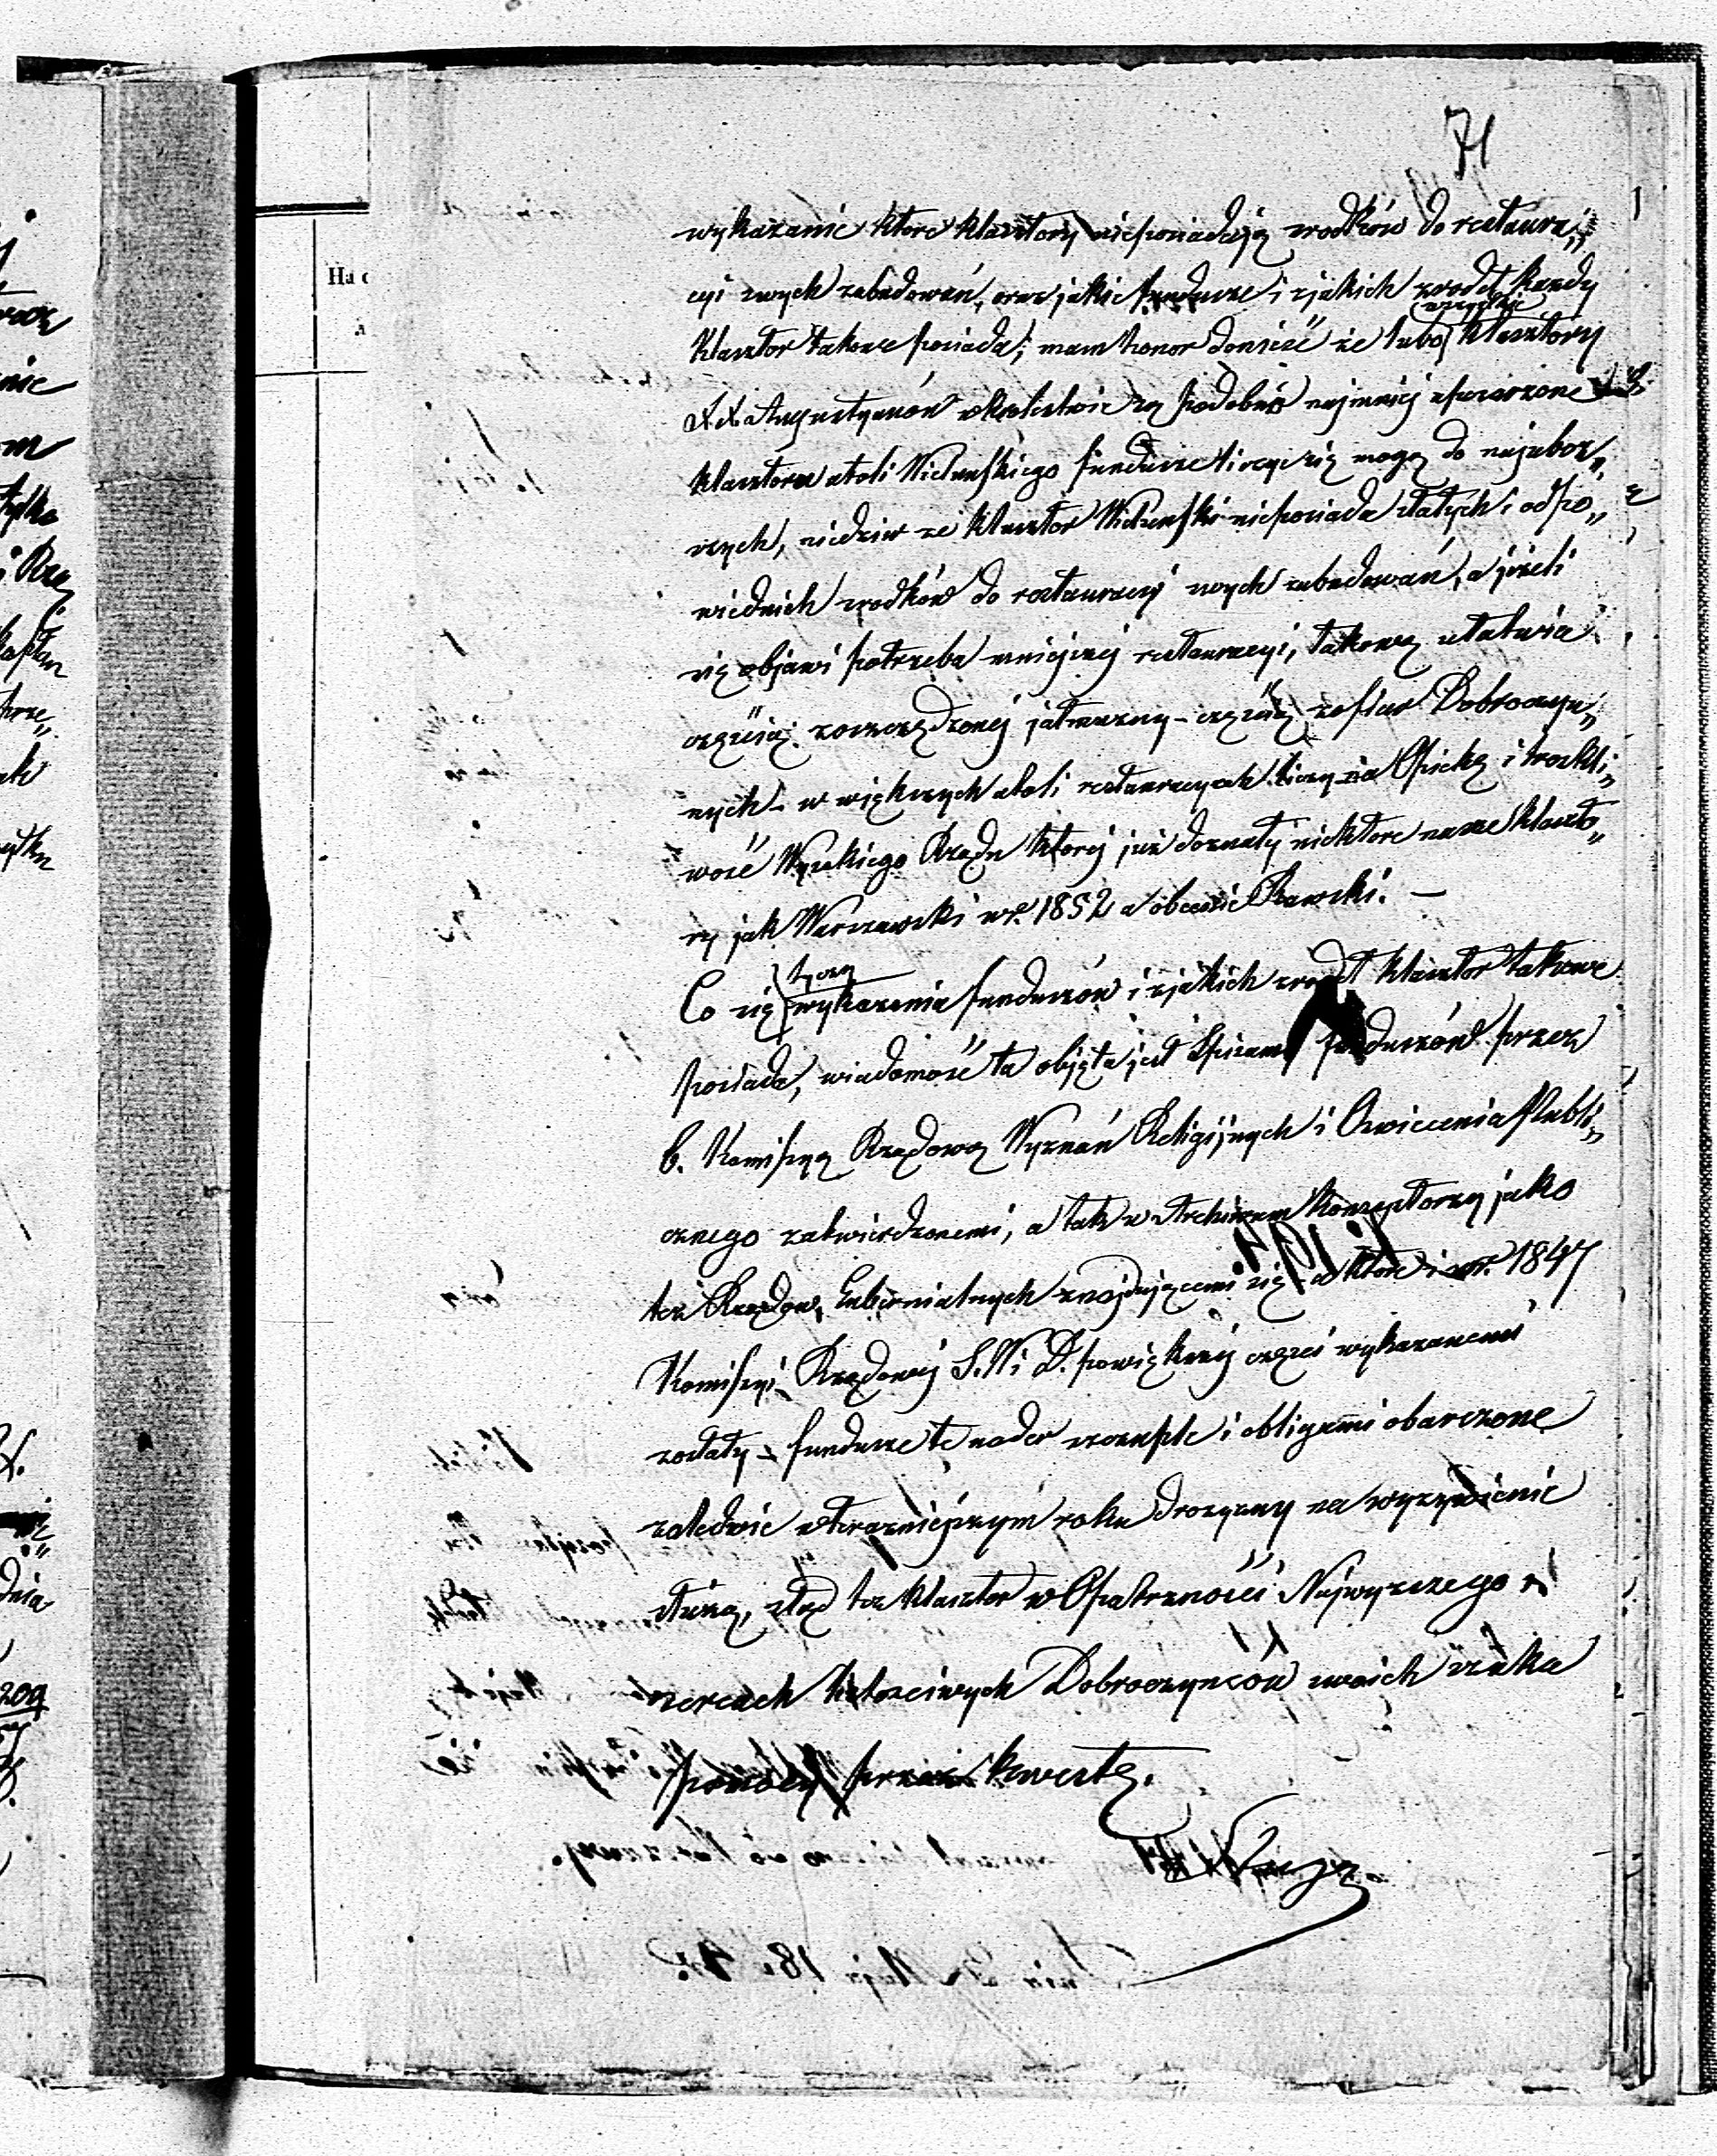 71
wykazanie które klasztory nieposiadają srodków do restaura„
cyi swych zabudowań, oraz jakie fundusze i zjakich zrodeł kazdy
klasztor takowe posiada; mam honor donieść ze lubo wszystkie klasztory
XX Augustyanów w krolestwie są podobno najmniej uposarzone
klasztoru atoli Wielunskiego fundusze liczyć się mogą do najuboz„
szych, niedziw ze klasztor Wielunski nieposiada stałych i odpo„
wiednich srodków do restauracyi swych zabudowań, a jeżeli
się objawi potrzeba mniejszej restauracyi, takową ułatwia
częścią zoszczędzonej jałmuzny – częścią zofiar Dobroczyn„
nych – w większych atoli restauracyach liczy na Opiekę i troskli„
wość Wysokiego Rządu której już doznały niektore nasze klaszto„
ry jak Warszawski w r. 1852 a obecnie Rawski. –
Co się tyczy wykazania funduszów i zjakich zrodeł klasztor takowe
posiada, wiadomość ta objęta jest Spisami funduszów przez
b. Komissyą Rządową Wyznań Religijnych i Oswiecenia Publi„
cznego zatwierdzonemi, a tak w Archiwum Konsystorzy jako
też Rządow Gubernialnych znajdującemi się, a które i w r. 1847
Komissyi Rządowej S. W. i D. powiększej części wykazanemi
zostały – fundusze te nader szczupłe i obligami obarczone
zaledwie w terazniejszym roku drozyzny na wyzywienie
służą, ztąd też klasztor w Opatrzności Najwyzszego i
sercach litosciwych Dobroczynców swoich szuka
pomocy przez kwestę.